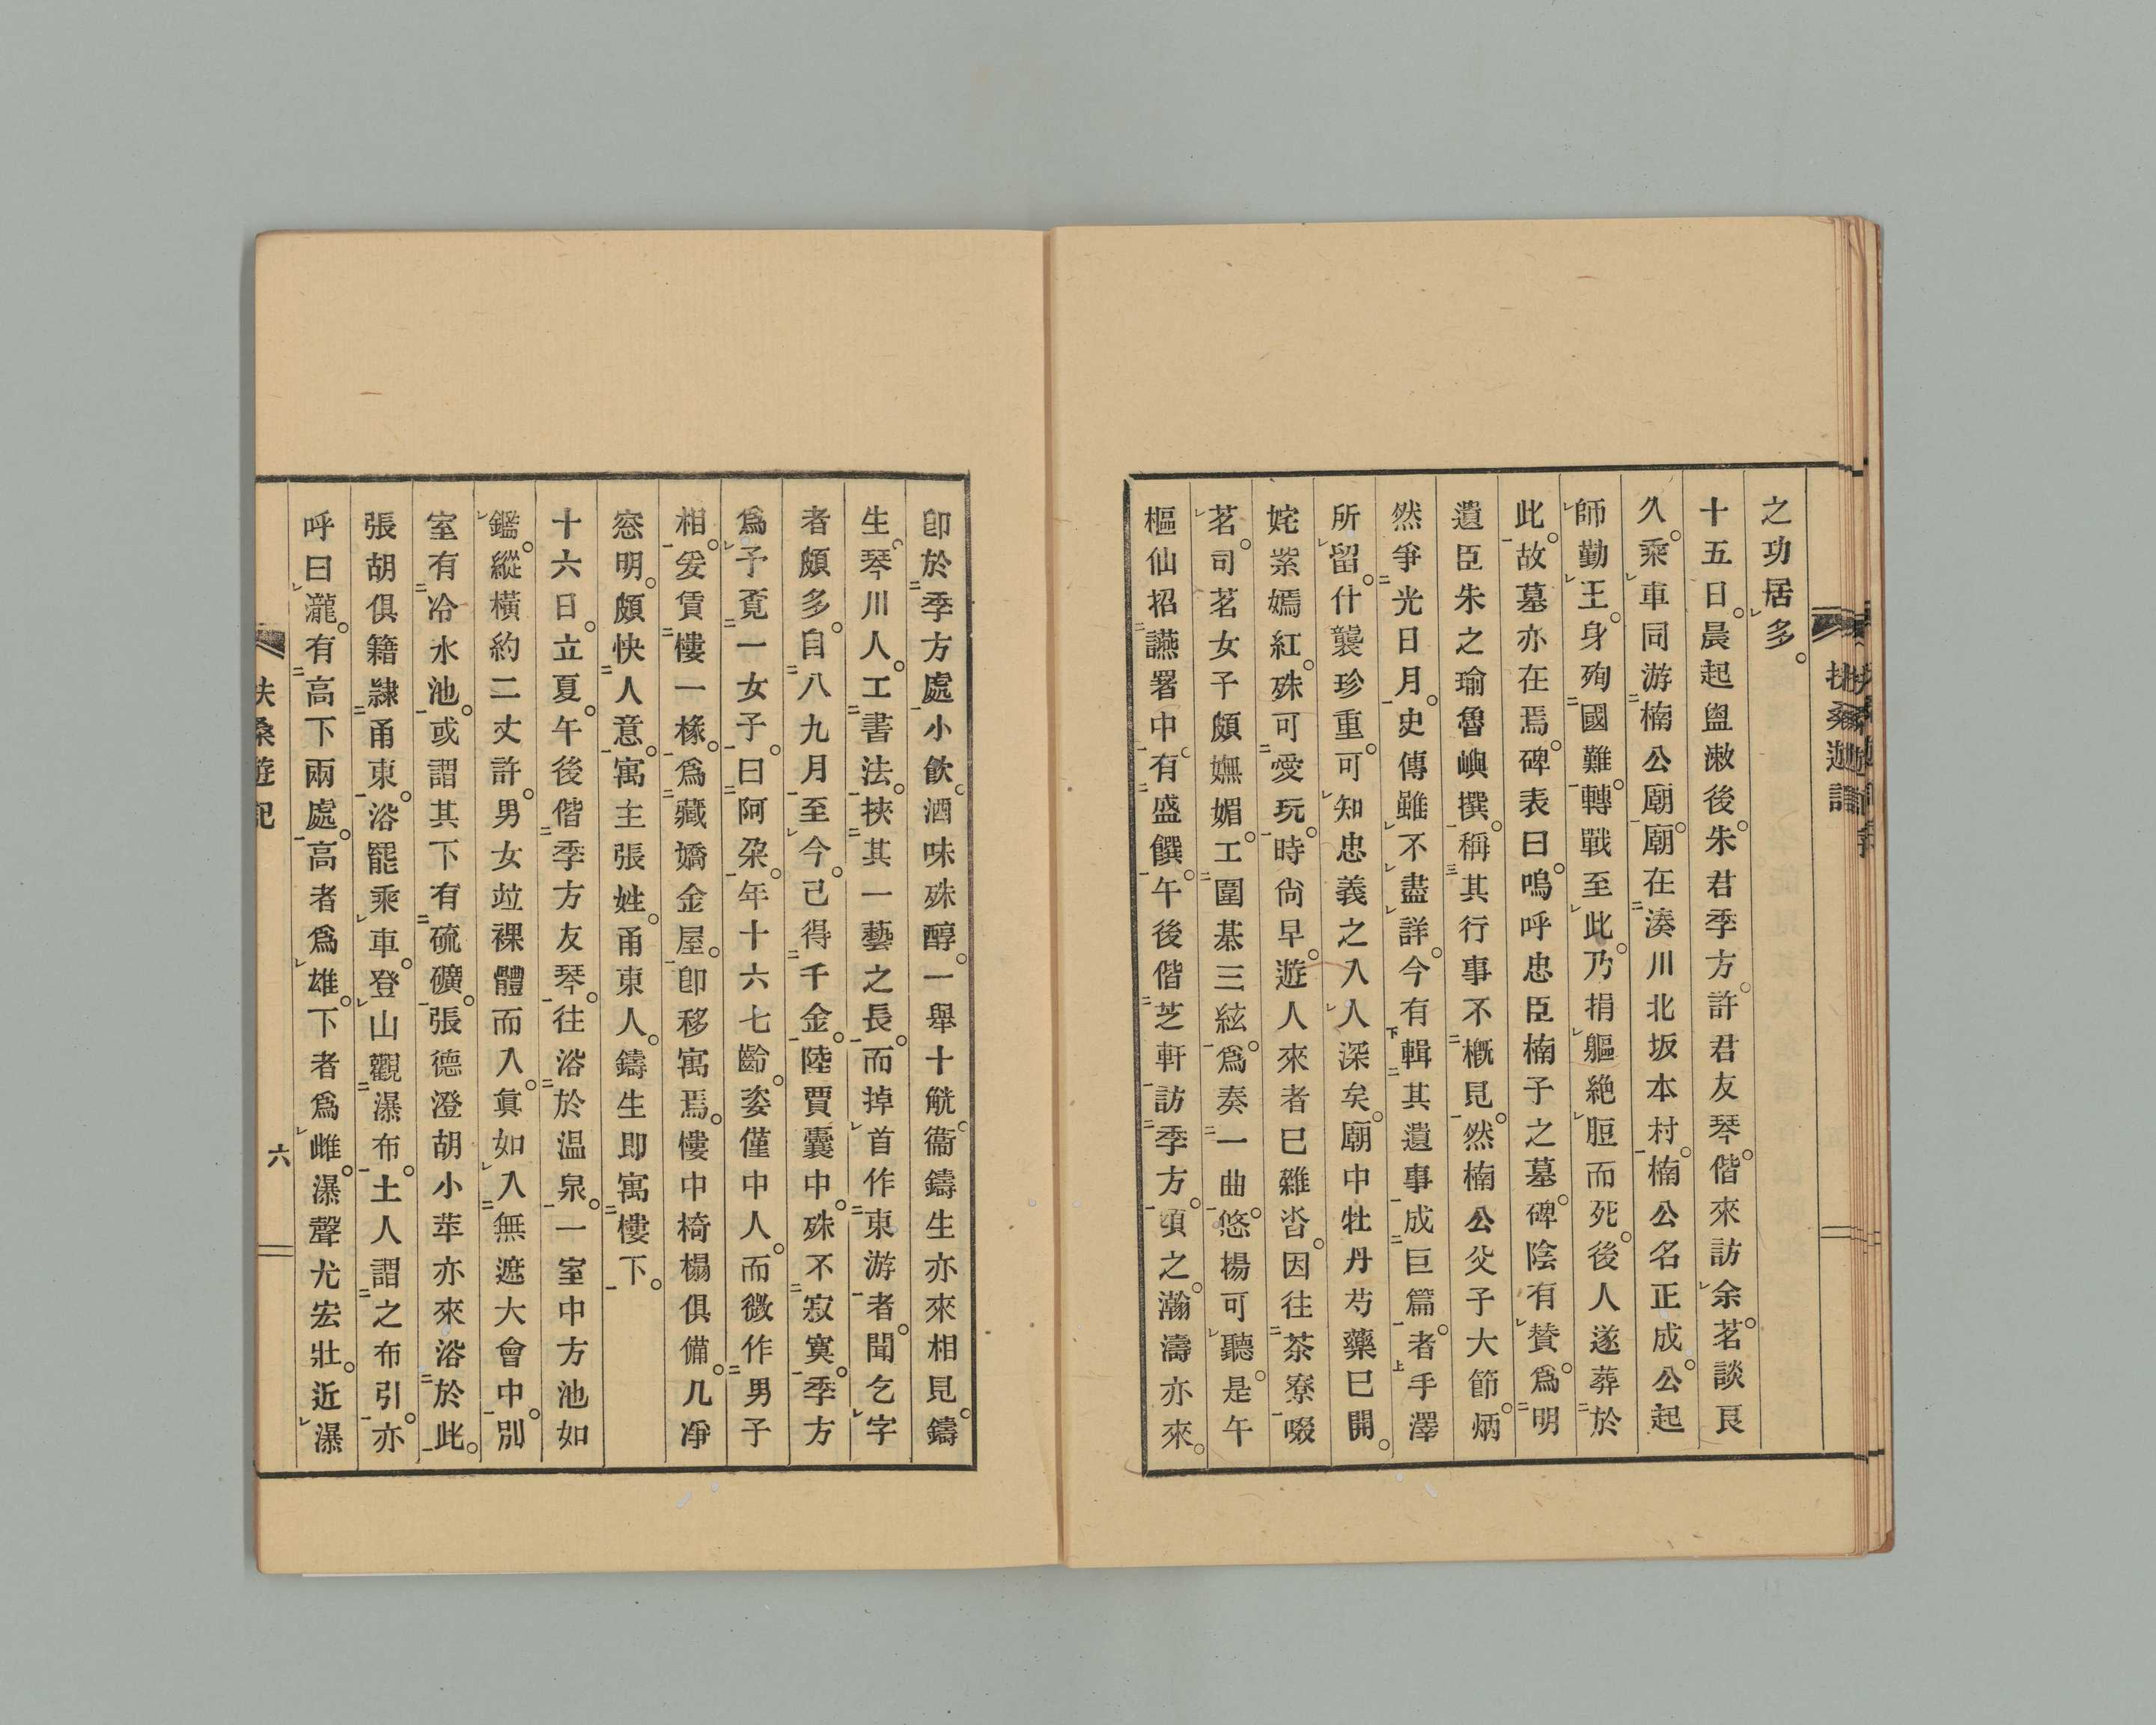 之功居多。
十五日。晨起盥漱後。朱君季方。許君友琴。偕來訪余。茗談良
久。乘車同游楠公廟。廟在湊川北坂本村。楠公名正成公。起
師勤王。身殉國難。轉戰至此。乃捐軀絶脰而死。後人遂葬於
此。故墓亦在焉。碑表曰。嗚呼忠臣楠子之墓。碑陰有賛。爲明
遺臣朱之瑜魯嶼撰。稱其行事不槪見。然楠公父子大節。炳
然爭光日月。史傳雖不盡詳。今有輯其遺事成巨篇者。手澤
所留。什襲珍重。可知忠義之入人深矣。廟中牡丹芍藥已開。
姹紫嫣紅。殊可愛玩。時尙早。遊人來者已雜沓。因往茶寮啜
茗。司茗女子頗嫵媚。工圍棊三絃。爲奏一曲。悠揚可聽。是午
樞仙招讌署中。有盛饌。午後偕芝軒訪季方。頃之。瀚濤亦來。
卽於季方處小飮。酒味殊醇。一擧十觥。衞鑄生亦來相見。鑄
生。琴川人。工書法。挾其一藝之長。而掉首作東游者。聞乞字
者頗多。自八九月至今。已得千金。陸賈囊中。殊不寂寞。季方
爲予覔一女子。曰阿朶。年十六七齡。姿僅中人。而微作男子
相。爰賃樓一椽。爲藏嬌金屋。卽移寓焉。樓中椅榻俱備。几凈
窓明。頗快人意。寓主張姓。甬東人。鑄生即寓樓下。
十六日。立夏。午後偕季方友琴。往浴於温泉。一室中方池如
鑑。縱橫約二丈許。男女竝裸體而入。眞如入無遮大會中。別
室有冷水池。或謂其下有硫礦。張德澄胡小苹亦來浴於此。
張胡俱籍隷甬東。浴罷乘車。登山觀瀑布。土人謂之布引。亦
呼曰瀧。有高下兩處。高者爲雄。下者爲雌。瀑聲尤宏壯。近瀑
扶桑遊記
六